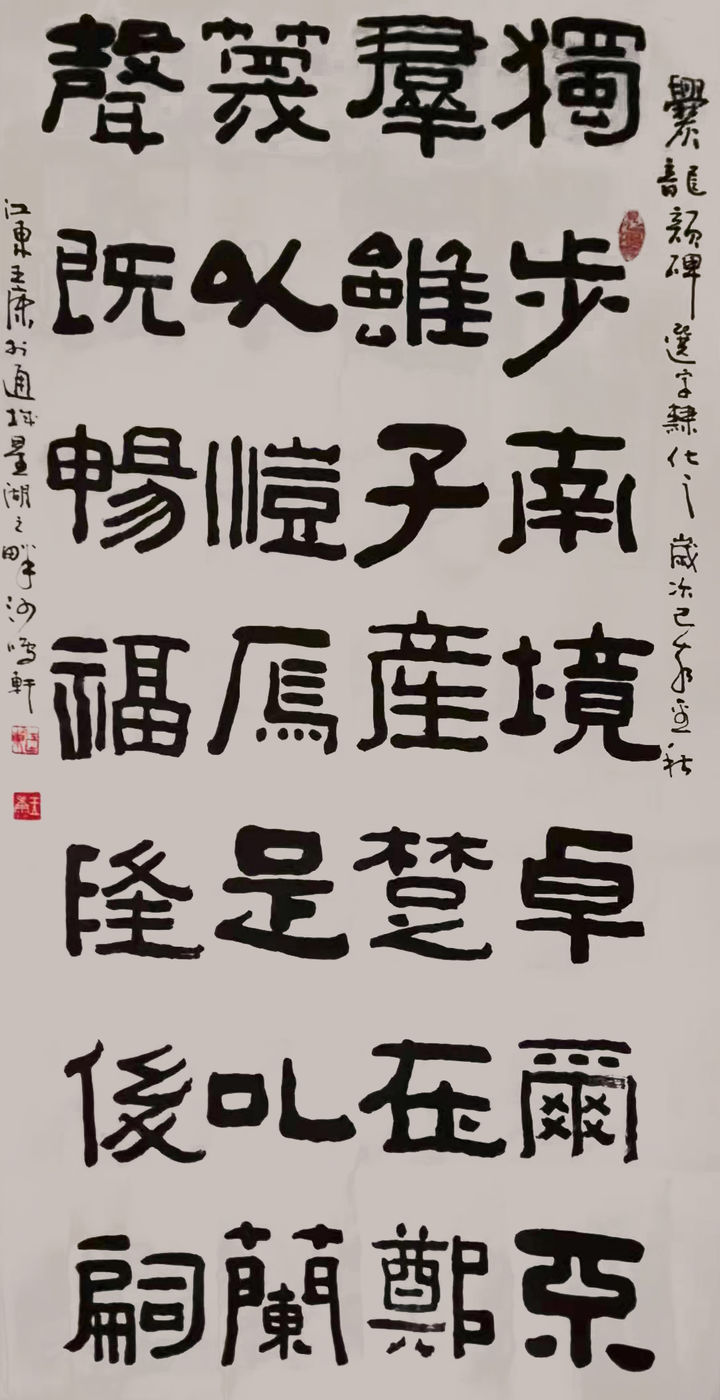 爨龍顏碑選字隸化之歲次己亥秋
獨步南境卓爾不
羣雖子産楚在鄭
蔑以愷焉是以蘭
聲既暢福隆後嗣
江東王康於通城星湖之畔沙鳴軒